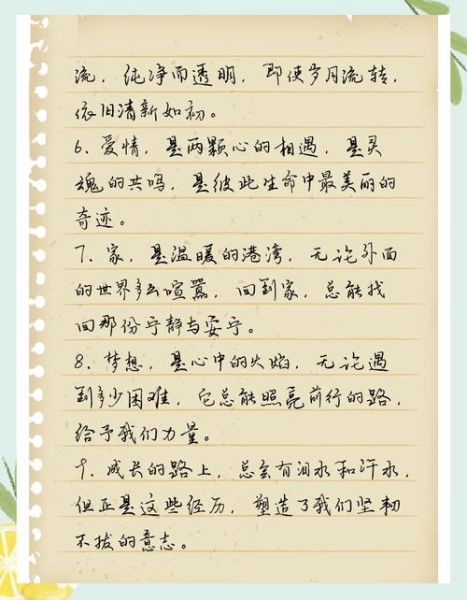 流，纯净而透明，即使岁月流转，
依旧清新如初。
6、爱情，是两颗心的相遇，是灵
魂的共鸣，是彼此生命中最美丽的
奇迹。
7、家，是温暖的港湾，无论外面
的世界多么喧嚣，回到家，总能找
回那份宁静与安宁。
8、梦想，是心中的火焰，无论遇
到多少困难，它总能照亮前行的路，
给予我们力量。
9、成长的路上，总会有泪水和汗水，
但正是这些经历，塑造了我们坚韧
不拔的意志。